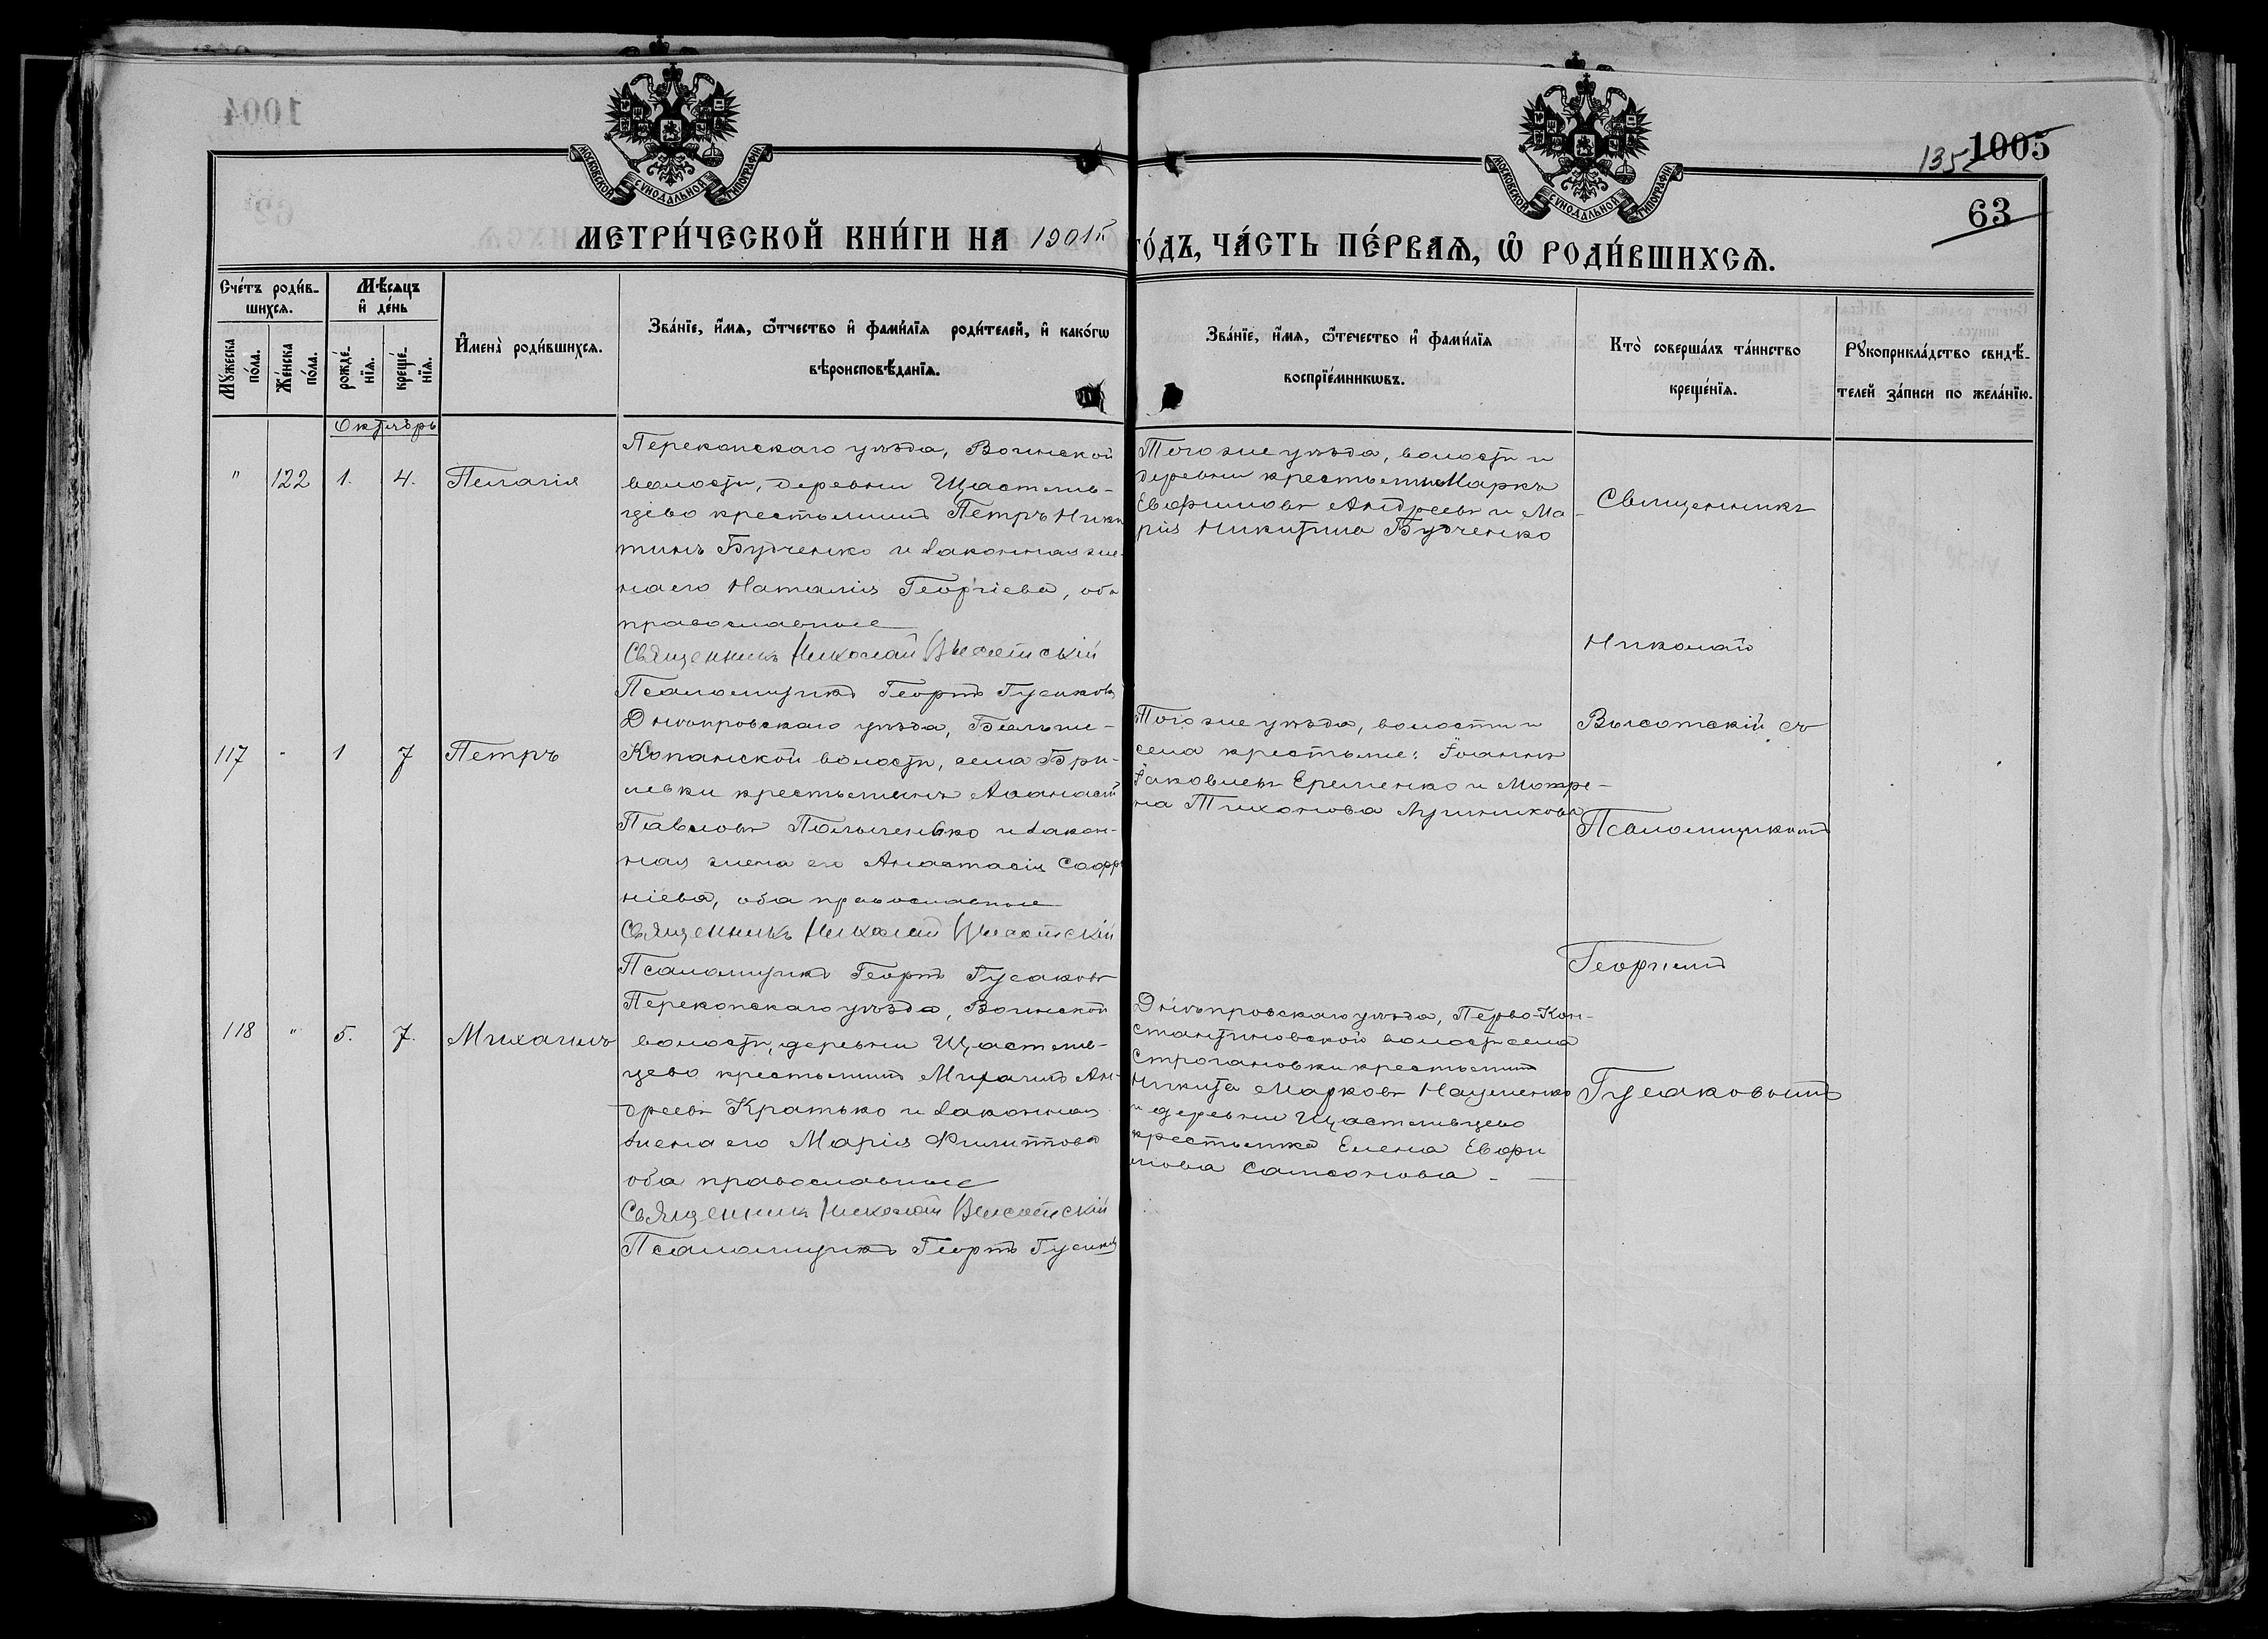 МОСКОВСКОЙ СУНОДАЛЬНОЙ ТИПОГРАФІИ
МОСКОВСКОЙ СУНОДАЛЬНОЙ ТИПОГРАФІИ
1005
135
63
МЕТРИ́ЧЕСКОЙ КНИ́ГИ НА 1901й го́дъ, ЧА́СТЬ ПЕ́РВАѦ, Ѡ҆ РОДИ́ВШИХСѦ.
Сче́тъ роди́в-
шихсѧ.
Мꙋ́жеска
по́ла.
Же́нска
по́ла.
Мѣ́сѧцъ
и҆ де́нь
рожде́-
нїѧ.
креще́-
нїѧ.
И҆мена̀ роди́вшихсѧ.
Зва́нїе, и҆́мѧ, ѻ҆́тчество и҆ фами́лїѧ роди́телей, и҆ како́гѡ
вѣроисповѣ́данїѧ.
Зва́нїе, и҆́мѧ, ѻ҆́течество и҆ фами́лїѧ
воспрїе́мникѡвъ.
Кто̀ соверша́лъ та́инство
креще́нїѧ.
Рꙋкоприкла́дство свидѣ́-
телей за́писи по жела́нїю.
Октябрь
" 122 1. 4. Пелагія
Перекопскаго уѣзда, Воинской
волости, деревни Щастлив-
цево крестьянинъ Петръ Ники
тинъ Будченко и законная же-
на его Наталія Георгіева, оба
православные
Священникъ Николай Высотскій
Псаломщикъ Георгій Гусаковъ
Того же уѣзда, волости и
деревни крестьяне Маркъ
Евфимовъ Андреевъ и Ма-
рія Никитина Будченко
117 " 1 7 Петръ
Днѣпровскаго уѣзда, Больше-
Копанской волости, села Бри-
левки крестьянинъ Аѳанасій
Павловъ и закон-
ная жена его Анастасія Софро
ніева, оба православные
Священникъ Николай Высотскій
Псаломщикъ Георгій Гусаковъ
Того же уѣзда, волости и
села крестьяне: Іоаннъ
Іаковлевъ Еременко и Матре-
на Тихонова
118 " 5. 7. Михаилъ
Перекопскаго уѣзда, Воинской
волости, деревни Щастлив-
цево крестьянинъ Михаилъ Ан-
дреевъ Кратько и законная
жена его Марія Филиппова
оба православные
Священникъ Николай Высотскій
Псаломщикъ Георгій Гусаковъ
Днѣпровскаго уѣзда, Перво-Кон-
стантиновской волости села
Строгановки крестьянинъ
Никита Марковъ Науменко
и деревни Щастливцево
крестьянка Елена Евфи
мова Самсонова
Священникъ
Николай
Высотскій съ
Псаломщикомъ
Георгіемъ
Гусаковымъ